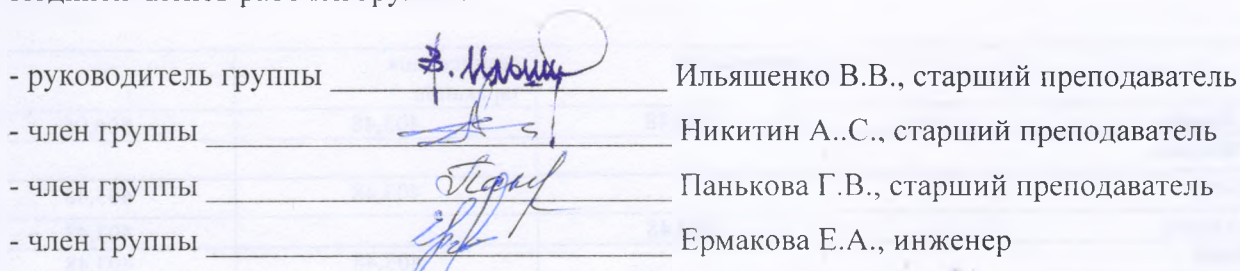 - руководитель группы В. Ильяш Ильяшенко В.В., старший преподаватель
- член группы Никитин А..С., старший преподаватель
- член группы Панькова Г.В., старший преподаватель
- член группы Ермакова Е.А., инженер